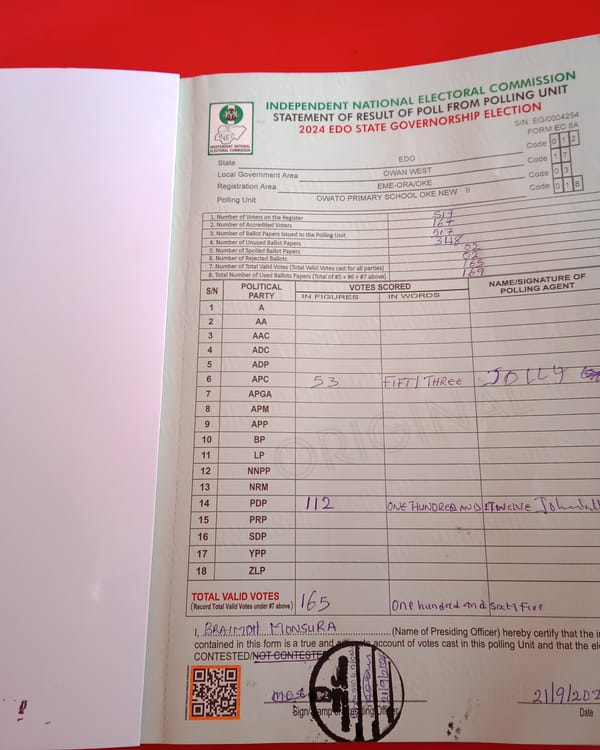 INDEPENDENT NATIONAL ELECTORAL COMMISSION
STATEMENT OF RESULT OF POLL FROM POLLING UNIT
2024 EDO STATE GOVERNORSHIP ELECTION
S/N: EG/0004254
FORM EC 8A
INDEPENDENT NATIONAL ELECTORAL COMMISSION
State EDO Code 0 1 2
Local Government Area OWAN WEST Code 1 7
Registration Area EME-ORA/OKE Code 0 3
Polling Unit OWATO PRIMARY SCHOOL OKE NEW II Code 0 1 8
1. Number of Voters on the Register 517
2. Number of Accredited Voters 167
3. Number of Ballot Papers Issued to the Polling Unit 517
4. Number of Unused Ballot Papers 348
5. Number of Spoiled Ballot Papers 02
6. Number of Rejected Ballots 02
7. Number of Total Valid Votes (Total Valid Votes cast for all parties) 165
8. Total Number of Used Ballots Papers (Total of #5 + #6 + #7 above) 169
S/N POLITICAL PARTY VOTES SCORED NAME/SIGNATURE OF POLLING AGENT
IN FIGURES IN WORDS
1 A
2 AA
3 AAC
4 ADC
5 ADP
6 APC 53 FIFTY THREE JOLLY
7 APGA
8 APM
9 APP
10 BP
11 LP
12 NNPP
13 NRM
14 PDP 112 ONE HUNDRED AND
15 PRP
16 SDP
17 YPP
18 ZLP
ORIGINAL
TOTAL VALID VOTES 165 One hundred and Sixty Five
(Record Total Valid Votes under #7 above)
I, BRAIMOH MONSURA (Name of Presiding Officer) hereby certify that the in
contained in this form is a true and account of votes cast in this polling Unit and that the ele
CONTESTED/NOT CONTESTED
21/9/202
Sign/Stamp of Presiding Officer Date